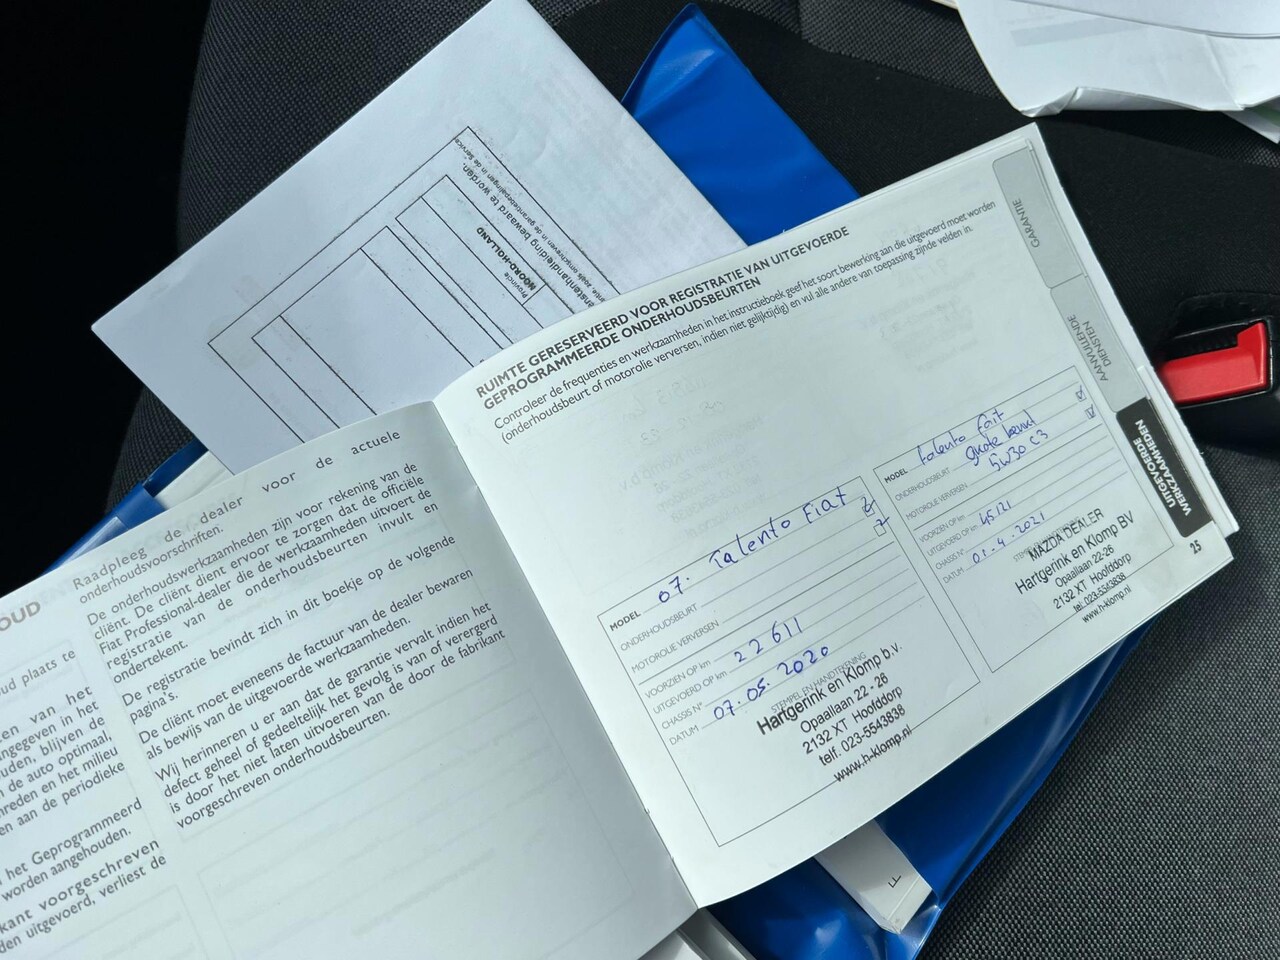 Provincie
NOORD-HOLLAND
OUD
Raadpleeg de dealer voor de actuele
onderhoudsvoorschriften.
De onderhoudswerkzaamheden zijn voor rekening van de
cliënt. De cliënt dient ervoor te zorgen dat de officiële
Fiat Professional-dealer die de werkzaamheden uitvoert de
registratie van de onderhoudsbeurten invult en
ondertekent.
De registratie bevindt zich in dit boekje op de volgende
pagina's.
De cliënt moet eveneens de factuur van de dealer bewaren
als bewijs van de uitgevoerde werkzaamheden.
Wij herinneren u er aan dat de garantie vervalt indien het
defect geheel of gedeeltelijk het gevolg is van of verergerd
is door het niet laten uitvoeren van de door de fabrikant
voorgeschreven onderhoudsbeurten.
ud plaats te
en van het
ngegeven in het
uden, blijven de
n de auto optimaal,
hreden en het milieu
en aan de periodieke
het Geprogrammeerd
worden aangehouden.
kant voorgeschreven
den uitgevoerd, verliest de
RUIMTE GERESERVEERD VOOR REGISTRATIE VAN UITGEVOERDE
GEPROGRAMMEERDE ONDERHOUDSBEURTEN
Controleer de frequenties en werkzaamheden in het instructieboek geef het soort bewerking aan die uitgevoerd moet worden
(onderhoudsbeurt of motorolie verversen, indien niet gelijktijdig) en vul alle andere van toepassing zijnde velden in.
MODEL 07. Talento Fiat
ONDERHOUDSBEURT
MOTOROLIE VERVERSEN
VOORZIEN OP km
UITGEVOERD OP km 22611
CHASSIS N°
DATUM 07.05.2020
STEMPEL EN HANDTEKENING
Hartgerink en Klomp b.v.
Opaallaan 22 - 26
2132 XT Hoofddorp
telf. 023-5543838
www.h-klomp.nl
MODEL Talento Fait
ONDERHOUDSBEURT grote beurt
MOTOROLIE VERVERSEN 5W30 C3
VOORZIEN OP km
UITGEVOERD OP km 45121
CHASSIS N°
DATUM 01-4-2021
MAZDA DEALER
Hartgerink en Klomp BV
Opaallaan 22-26
2132 XT Hoofddorp
tel: 023-5543838
www.h-klomp.nl
GARANTIE
AANVULLENDE
DIENSTEN
UITGEVOERDE
WERKZAAMHEDEN
25
F